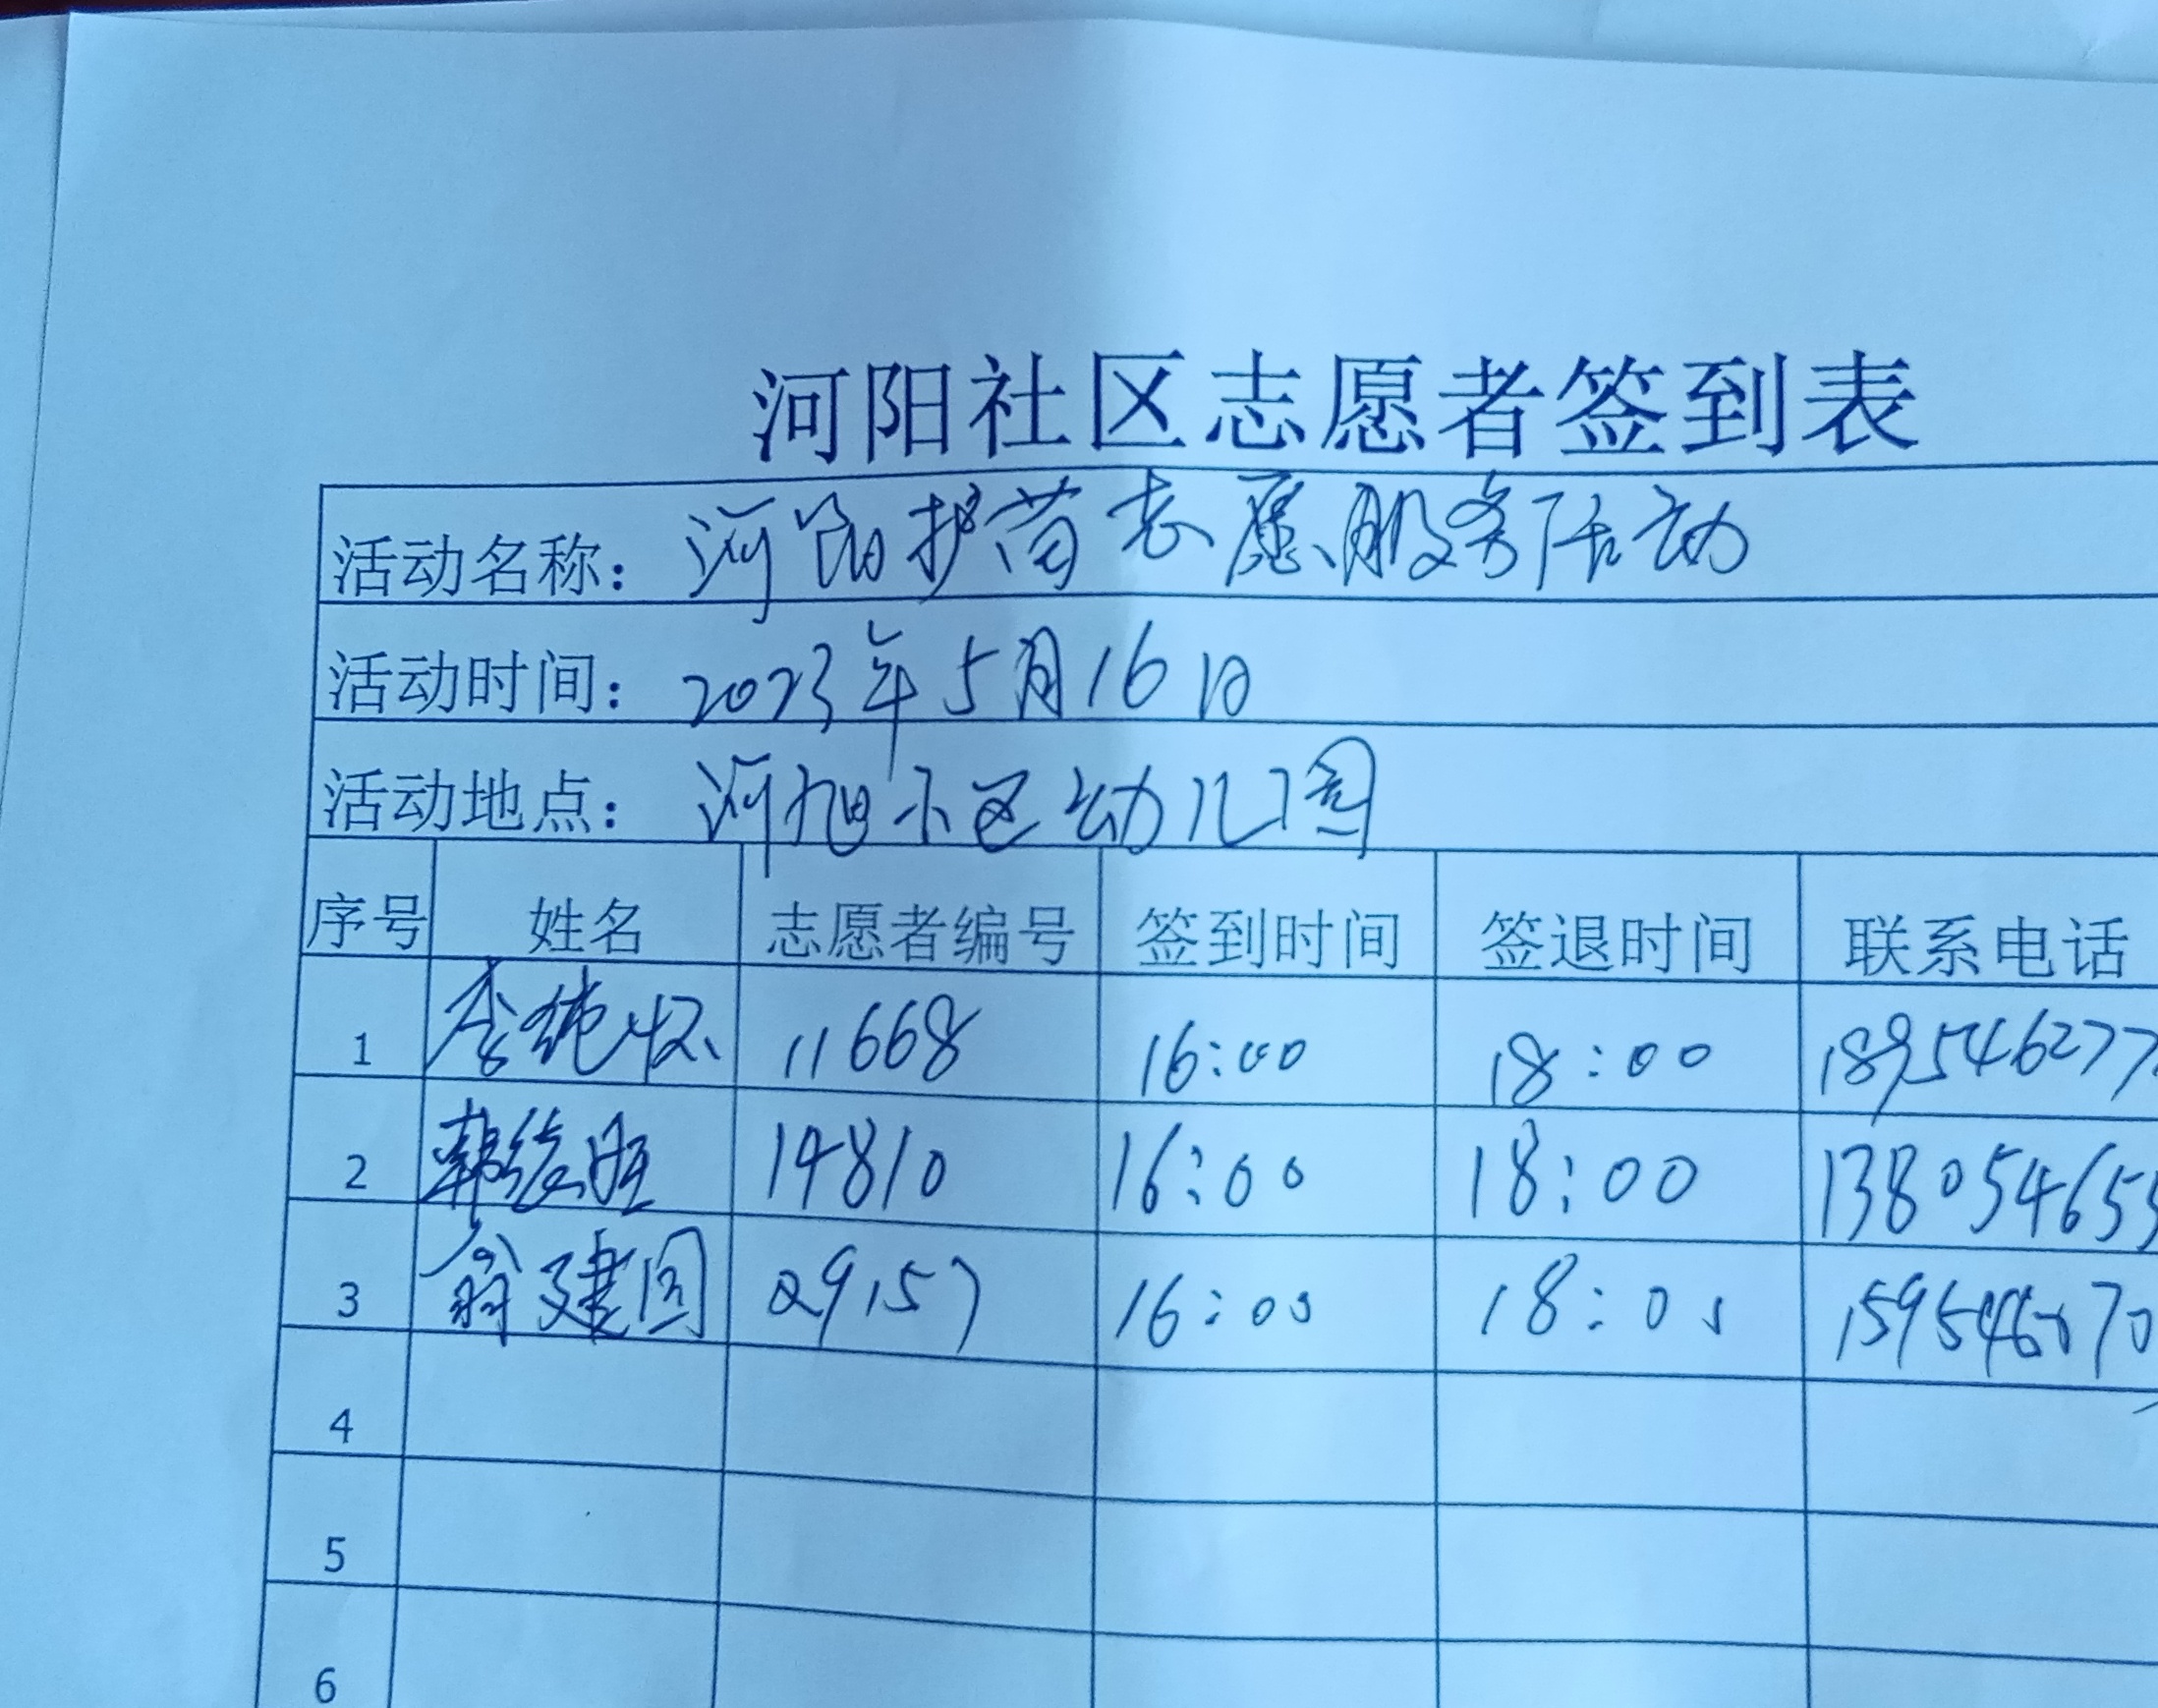 河阳社区志愿者签到表
活动名称：河阳护苗志愿服务活动
活动时间：2023年5月16日
活动地点：河旭小区幼儿园
序号 姓名 志愿者编号 签到时间 签退时间 联系电话
1 李纯怀 11668 16:00 18:00 189546277
2 韩德旺 14810 16:00 18:00 138054655
3 翁建国 29157 16:00 18:00
4
5
6